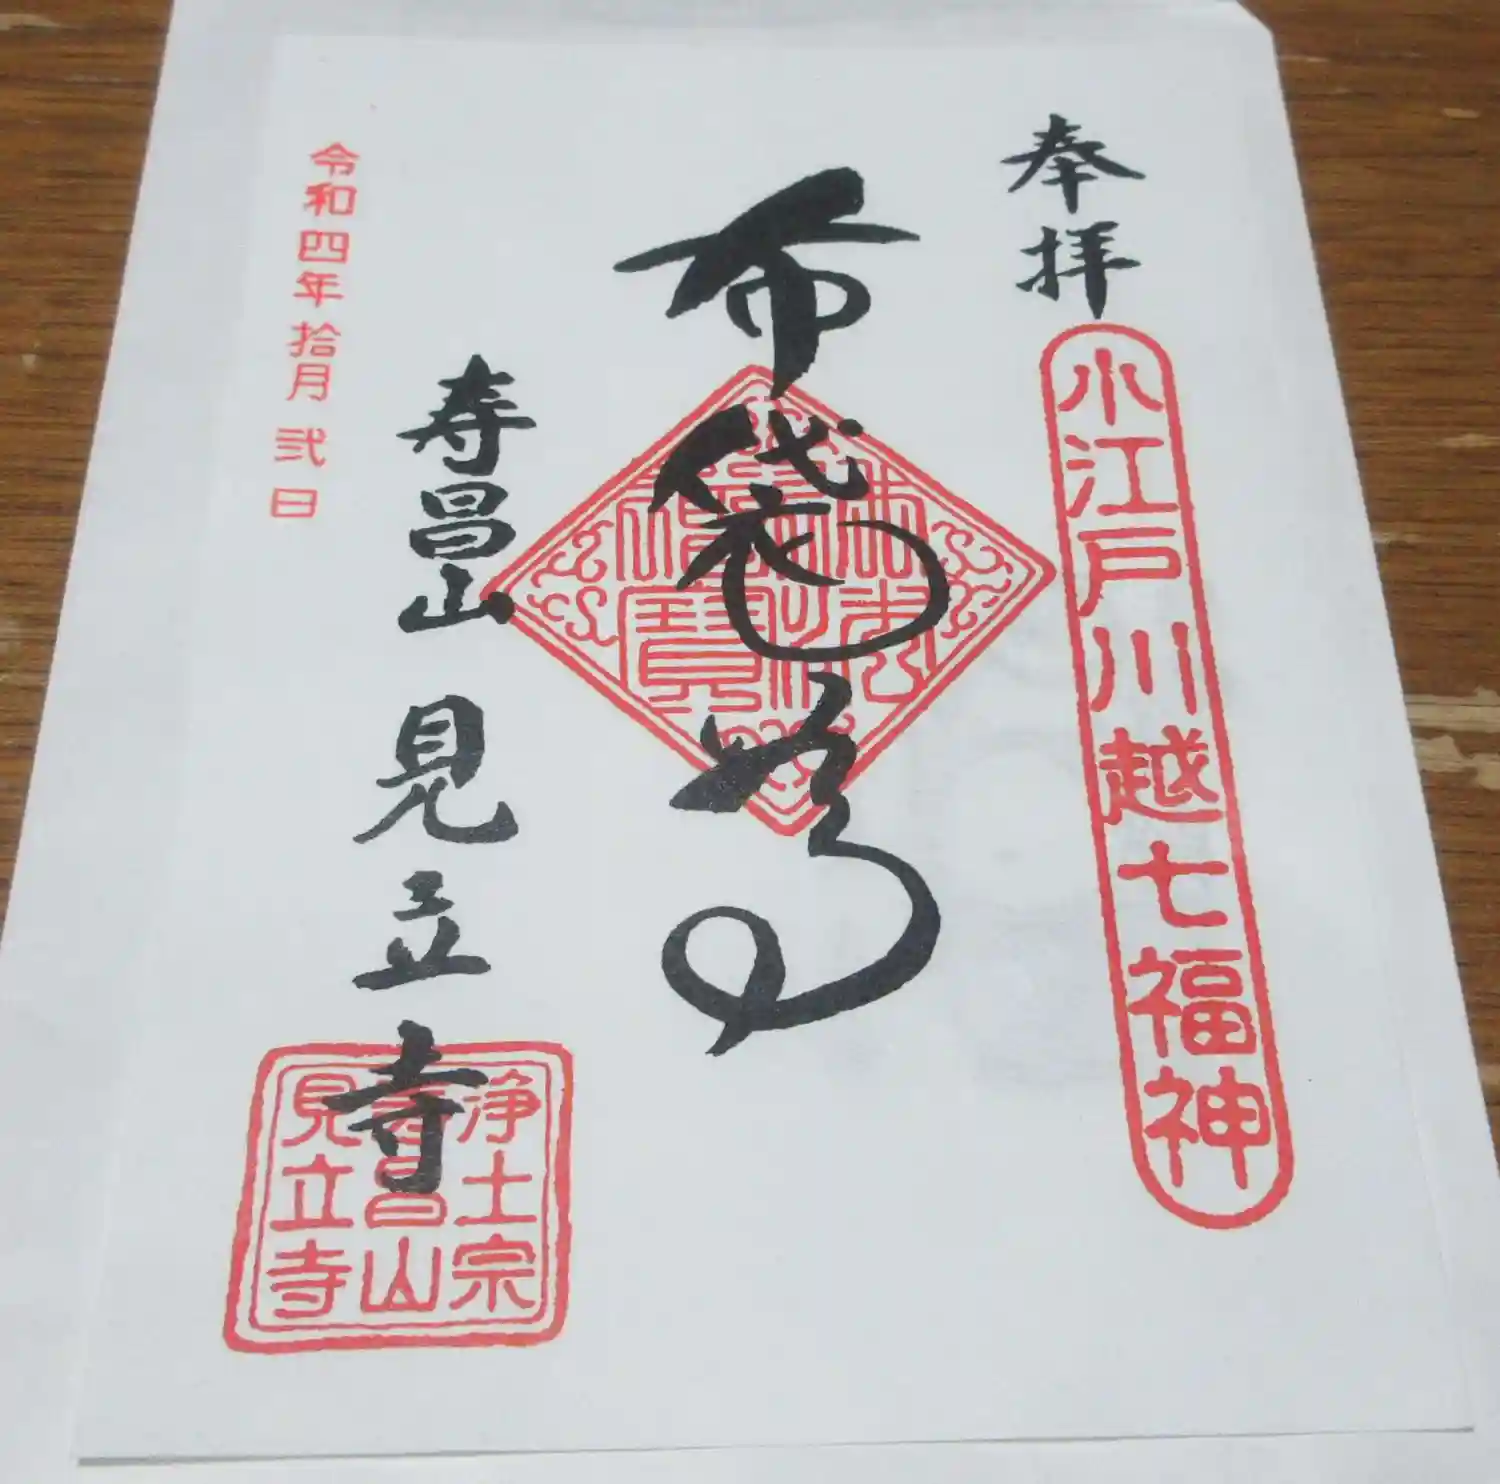 奉拝
小江戸川越七福神
布袋尊
寿昌山 見立寺
浄土宗
寿昌山
見立寺
令和四年拾月弐日